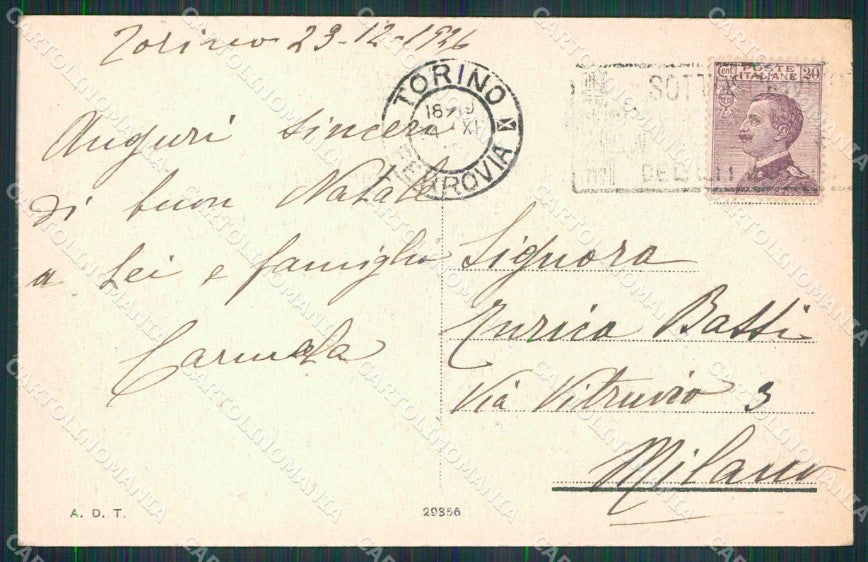 Torino 23-12-1926
Auguri sinceri
di buon Natale
a Lei e famiglia
Carmela
TORINO
FERROVIA
18-19
XII
SOTT
DEBITI
cent
POSTE
ITALIANE
20
Signora
Enrica Batti
Via Vitruvio 3
Milano
A. D. T.
29356
CARTOLINOMANIA